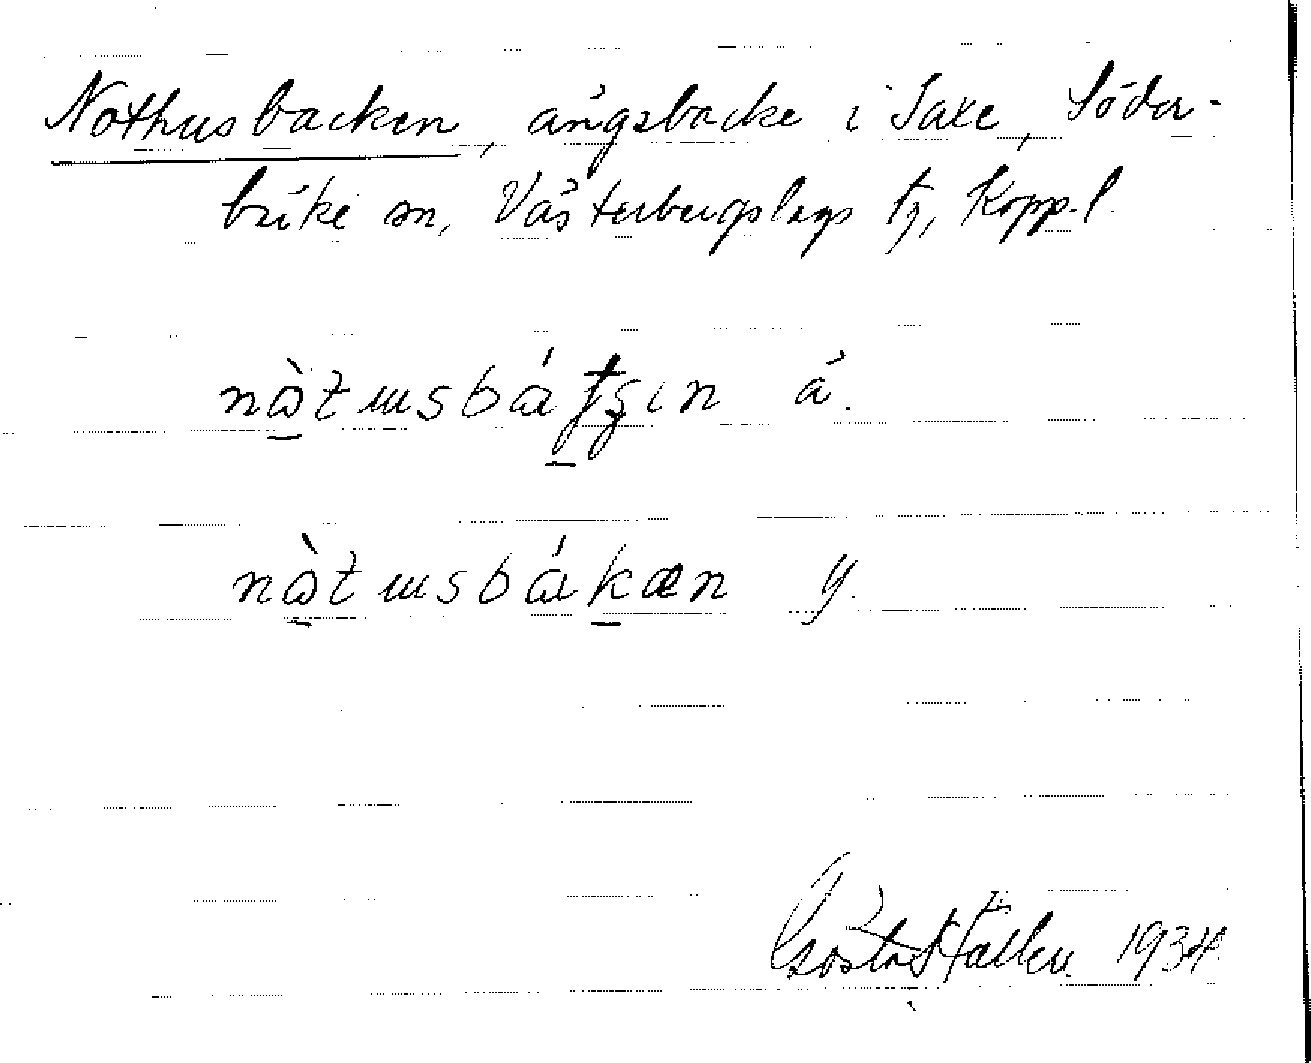 Nothusbacken, ängsbacke i Saxe, Söder-
bärke sn, Västerbergslags tg, Kopp. l.
nὼtɯsbátʂin ä.
nὼtɯsbákæn y.
Gösta 1934.